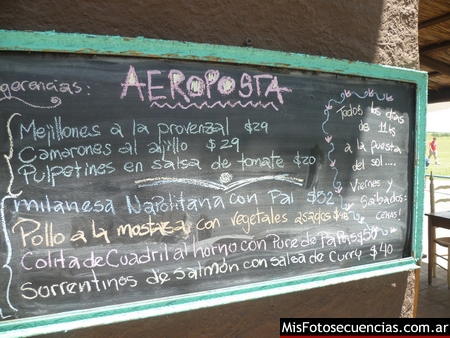 gerencias:
AEROPOSTA
Mejillones a la provenzal $29
Camarones al ajillo $29
Pulpetines en salsa de tomate $20
milanesa Napolitana con Pal $52
Pollo a la mostaza con vegetales asados $48
Colita de Cuadril al horno con Pure de Papas
Sorrentinos de salmón con salsa de curry $40
Todos los días
de 11hs
a la puesta
del sol....
Viernes y
Sabados:
cenas!
MisFotosecuencias.com.ar